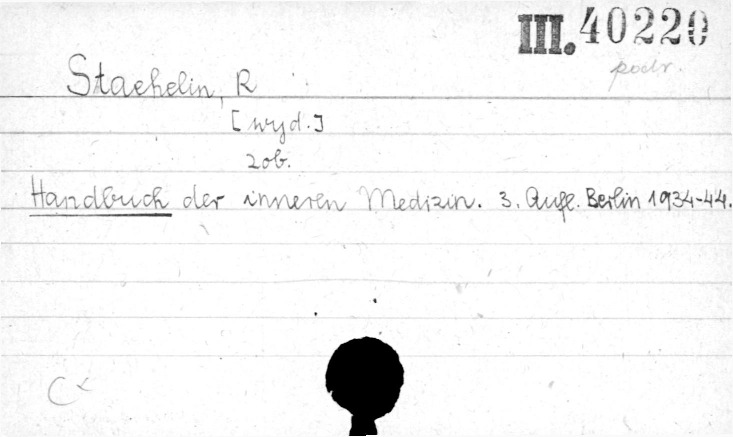 III. 40220
podr.
Staehelin, R
[wyd.]
zob.
Handbuch der inneren Medizin. 3. Aufl. Berlin 1934-44.